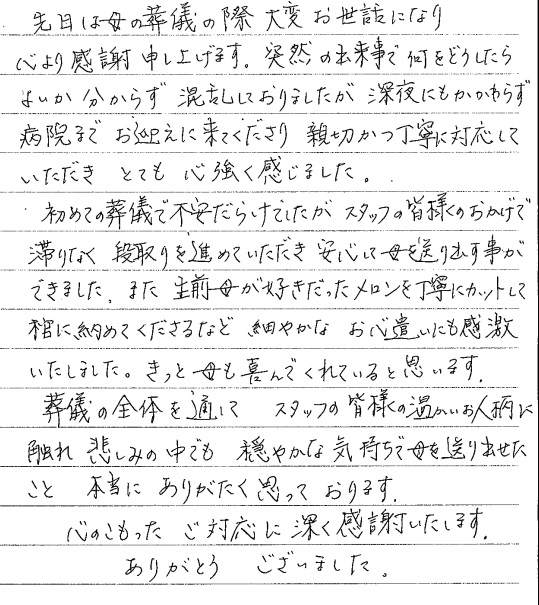 先日は母の葬儀の際 大変お世話になり
心より感謝申し上げます。突然の出来事で何をどうしたら
よいか分からず 混乱しておりましたが 深夜にもかかわらず
病院まで お迎えに来てくださり 親切かつ丁寧に対応して
いただき とても 心強く感じました。
初めての葬儀で不安だらけでしたが スタッフの皆様のおかげで
滞りなく 段取りを進めていただき 安心して母を送り出す事が
できました。また 生前母が好きだったメロンを丁寧にカットして
棺に納めてくださるなど 細やかな お心遣いにも感激
いたしました。きっと母も喜んでくれていると思います。
葬儀の全体を通して スタッフの皆様の温かいお人柄に
触れ 悲しみの中でも 穏やかな気持ちで母を送り出せた
こと 本当に ありがたく思って おります。
心のこもった ご対応に深く感謝いたします。
ありがとう ございました。